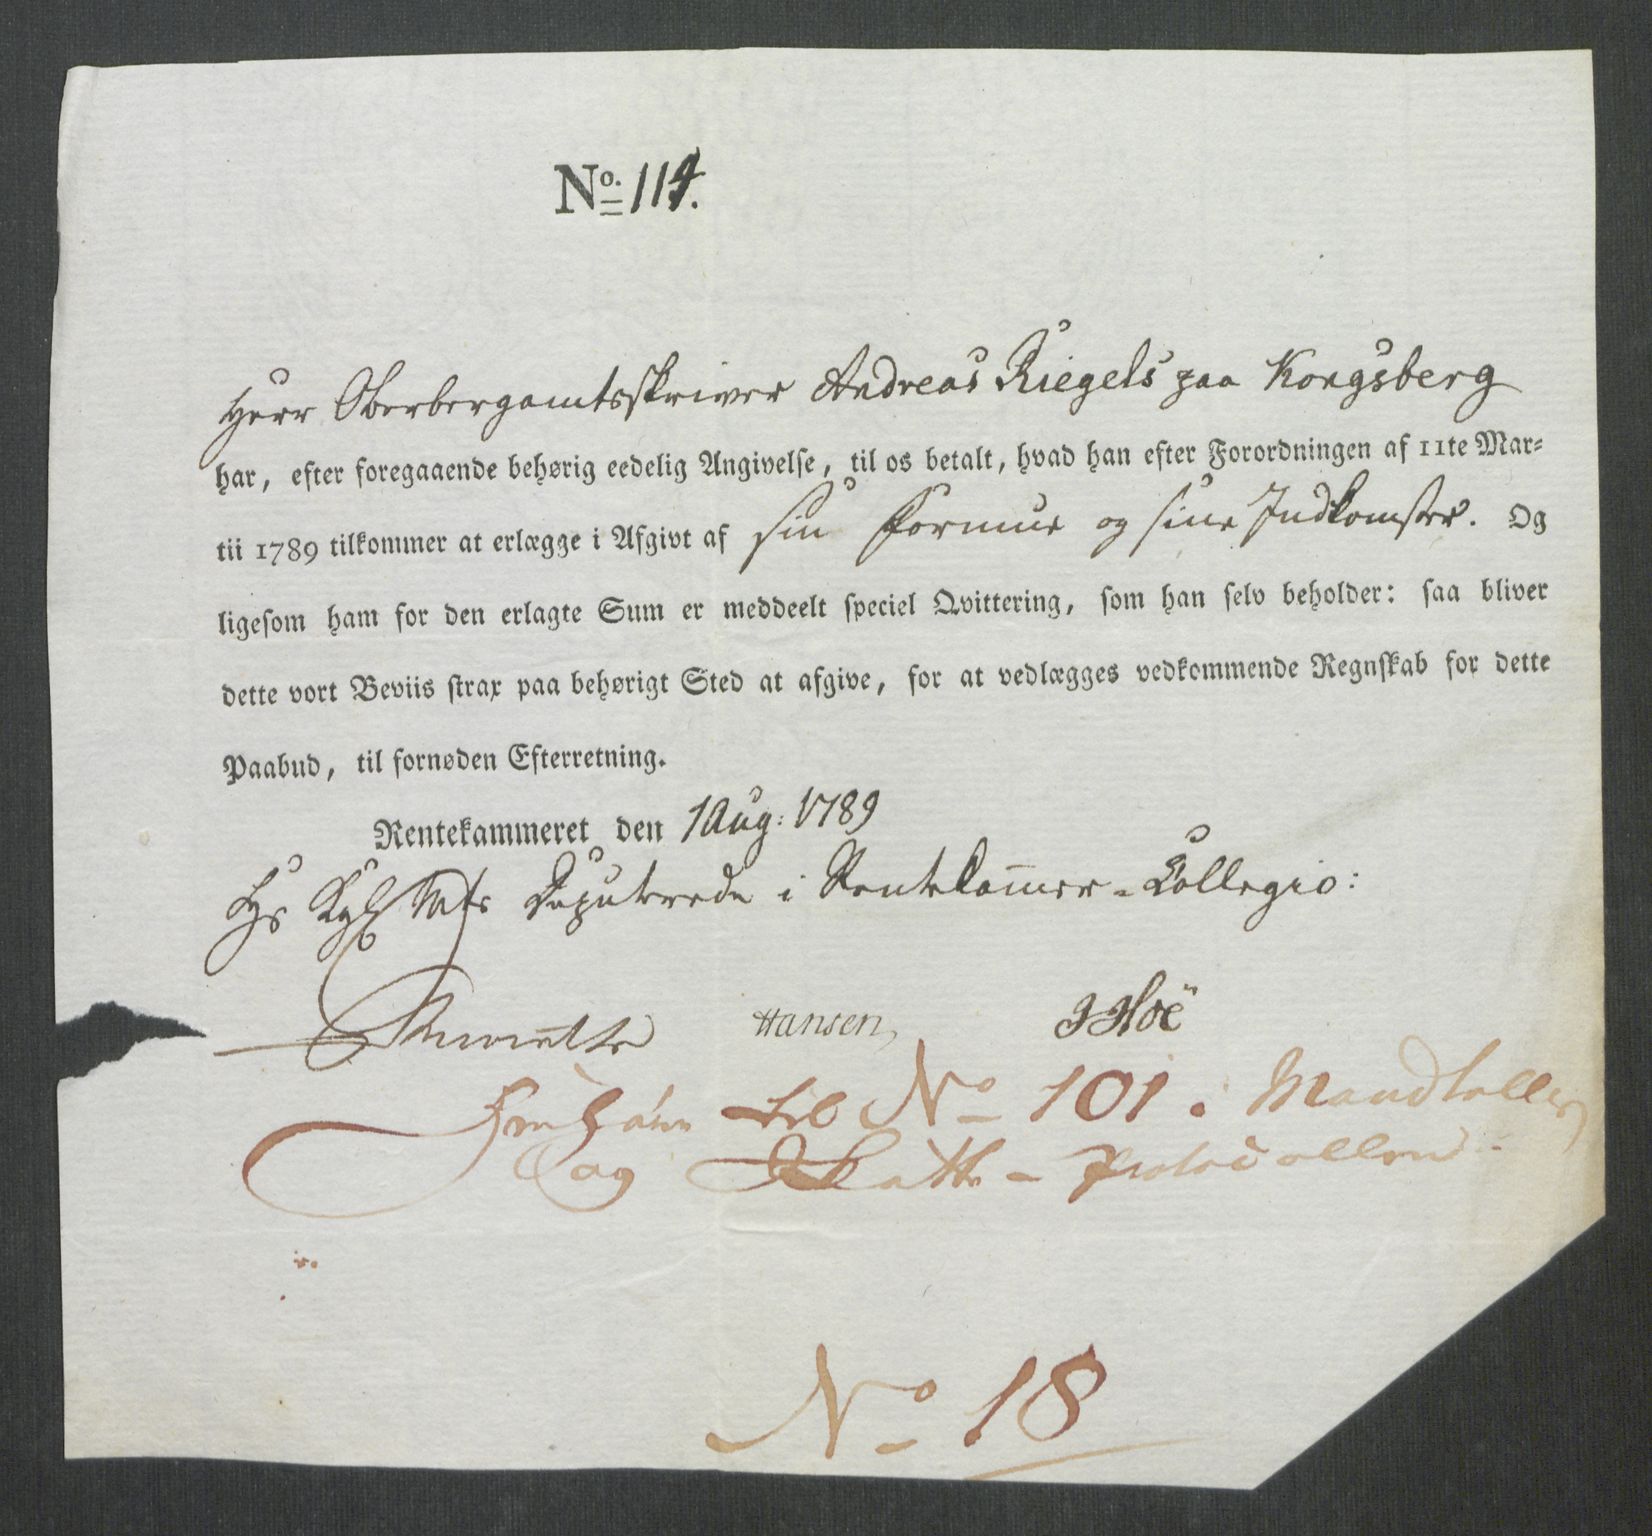 No. 114.
Herr Oberbergamtsskriver Andreas Riegels paa Kongsberg
har, efter foregaaende behørig eedelig Angivelse, til os betalt, hvad han efter Forordningen af 11te Mar-
tii 1789 tilkommer at erlægge i Afgivt af sin Formue og sine Indkomster. Og
ligesom ham for den erlagte Sum er meddeelt speciel Qvittering, som han selv beholder: saa bliver
dette vort Beviis strax paa behørigt Sted at afgive, for at vedlægges vedkommende Regnskab for dette
Paabud, til fornøden Efterretning.
Rentekammeret den 1 Aug: 1789
Hs Kgl Mts Deputerede i Rentekammer-Collegio:
Hansen, J Hoë
Henhører til No 101 i Mandtallet
og Skatte-Protocollen
No 18